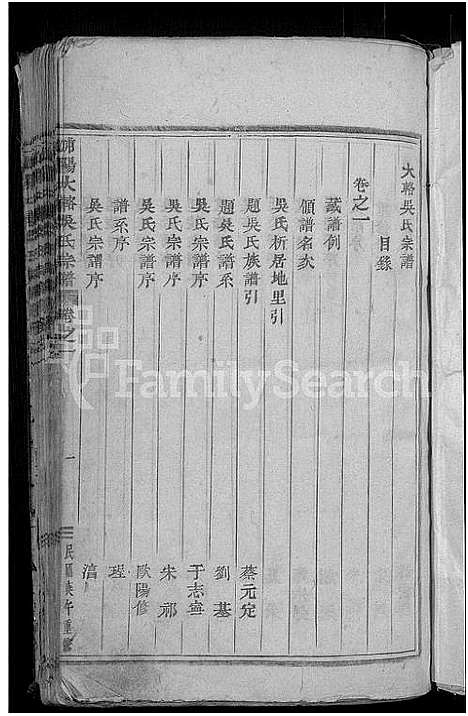 大路吳氏宗譜
目錄
卷之一
藏譜例
領譜名次
吳氏析居地里引
題吳氏族譜引 蔡元定
題吳氏譜系 劉基
吳氏宗譜序 于志寧
吳氏宗譜序 朱祁
吳氏宗譜序 歐陽修
譜系序 珵
吳氏宗譜序 濆
陽大路吳氏宗譜 卷之一 一 民國癸重修
FamilySearch